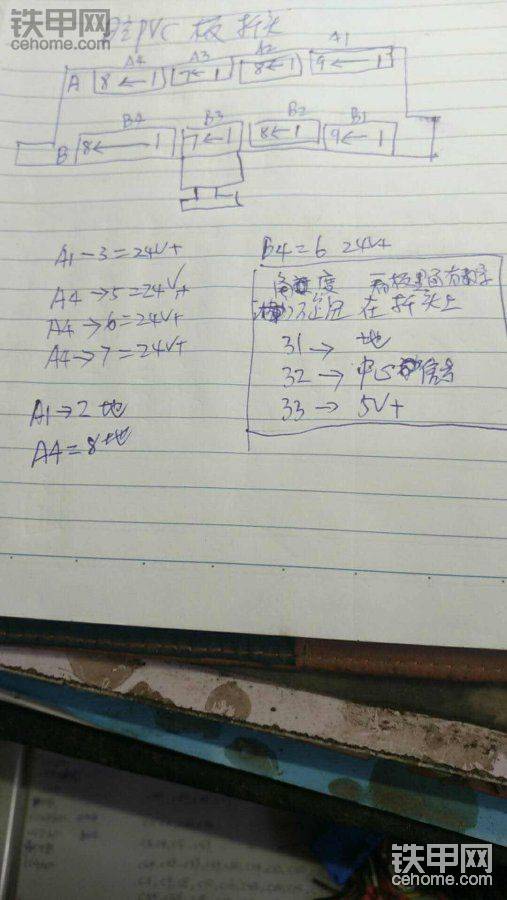 铁甲网
cehome.com
PVC 板 折头
A4 A3 A2 A1
A 8←1 7←1 8←1 9←1
B4 B3 B2 B1
B 8←1 7←1 8←1 9←1
A1-3=24V+
A4→5=24V+
A4→6=24V+
A4→7=24V+
A1→2 地
A4=8地
B4=6 24V+
度 板里面有数字
在 折头上
31→ 地
32→ 中心 信号
33→ 5V+
铁甲网
cehome.com